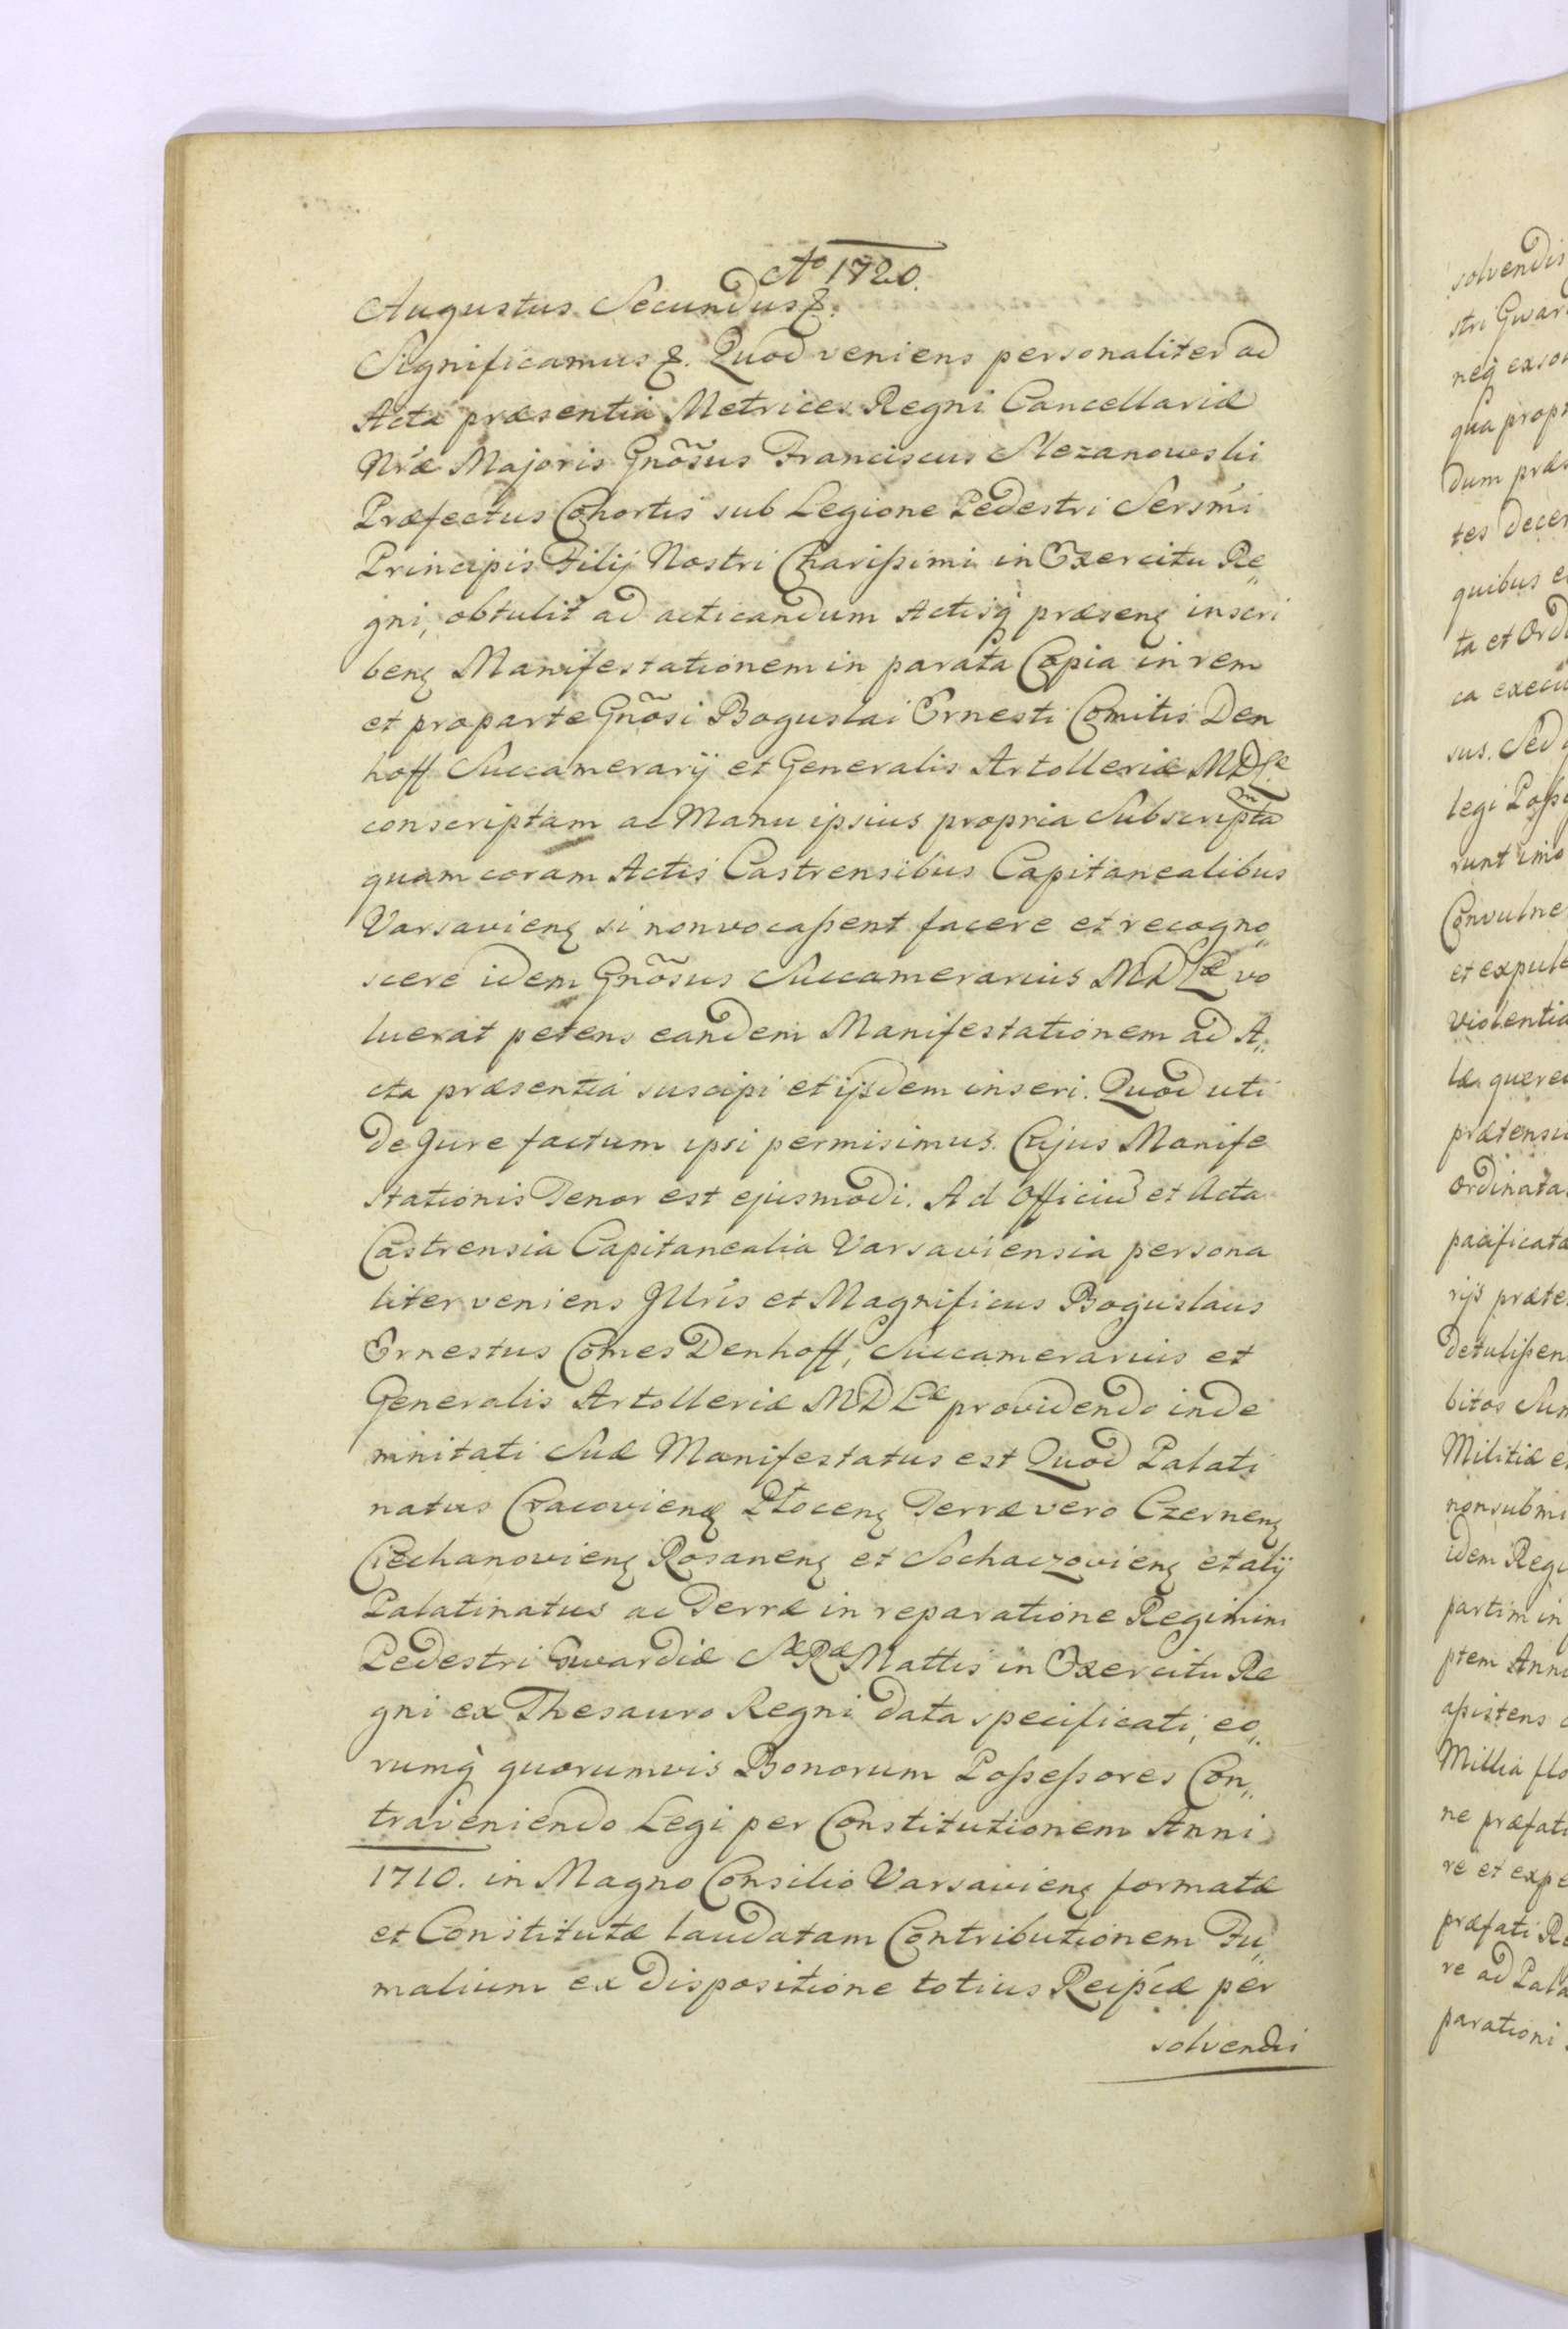 Ao 1720.
Augustus Secundus &.
Significamus &. Quod veniens personaliter ad
Acta præsentia Metrices Regni Cancellariæ
Nræ Majoris Gnõsus Franciscus Slezanowski
Præfectus Cohortis sub Legione Pedestri Sersmi
Principis Filij Nostri Charissimi in Exercitu Re„
gni, obtulit ad acticandum Actisq præsenę inscri
benę Manifestationem in parata Copia in rem
et proparte Gnõsi Boguslai Ernesti Comitis Den
hoff Succamerarij et Generalis Artolleriæ MDLæ
conscriptam ac Manu ipsius propria Subscriptam
quam coram Actis Castrensibus Capitanealibus
Varsavienę si nonvocassent facere et recogno„
scere idem Gnõsus Succamerarius MDLæ vo
luerat petens eandem Manifestationem ad A„
cta præsentia suscipi et ijsdem inseri. Quod uti
de Jure factum ipsi permisimus. Cujus Manife
stationis Tenor est ejusmodi. Ad Officiū et Acta
Castrensia Capitanealia Varsaviensia persona
liter veniens Jllris et Magnificus Boguslaus
Ernestus Comes Denhoff, Succamerarius et
Generalis Artolleriæ MDLæ providendo inde
mnitati Suæ Manifestatus est Quod Palati
natus Cracovienę Płocenę Terræ vero Czernenę
Ciechanovienę Rosanenę et Sochaczovienę et alij
Palatinatus ac Terræ in reparatione Regimini
Pedestri Gwardiæ SæRæMattis in Exercitu Re
gni ex Thesauro Regni data specificati, eo„
rumq quorumvis Bonorum Possessores Con„
traveniendo Legi per Constitutionem Anni
1710. in Magno Consilio Varsavienę formatæ
et Constitutæ laudatam Contributionem Fu„
malium ex dispositione totius Reipcæ per
solvendi
solvendis
stri Gwar
neq exsol
qua propr
dum præs
tes decer
quibus e
ta et Ord
ca execu
sus. Sed q
legi Posse
runt imo
Convulne
et expule
violentia
las quere
prætensi
ordinata
pacificata
rijs præte
detulissen
bitos Sum
Militiæ e
non submi
idem Regi
partim in
ptem Anno
assistens
Millia flo
ne præfati
re et expe
præfati Re
re ad Pala
parationi